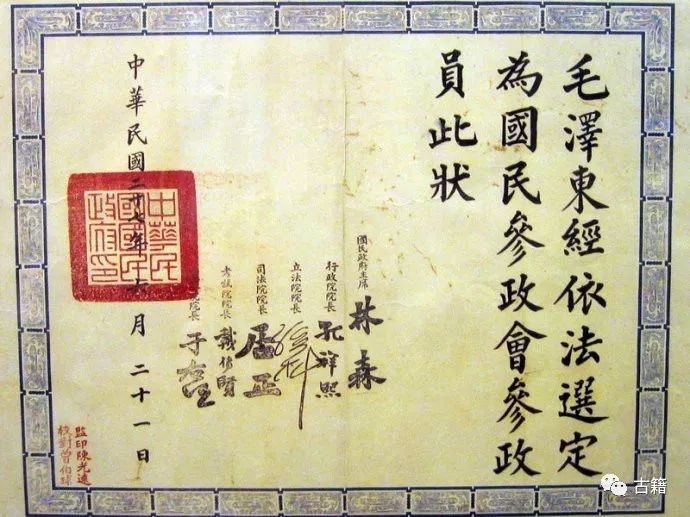 毛澤東經依法選定
為國民參政會參政
員此狀
國民政府主席 林森
行政院院長 孔祥熙
立法院院長 孫科
司法院院長 居正
考試院院長 戴傳賢
院院長 于右任
中華民國二十七年六月二十一日
中華民國國民政府印
監印陳光遠
校對曾伯球
古籍